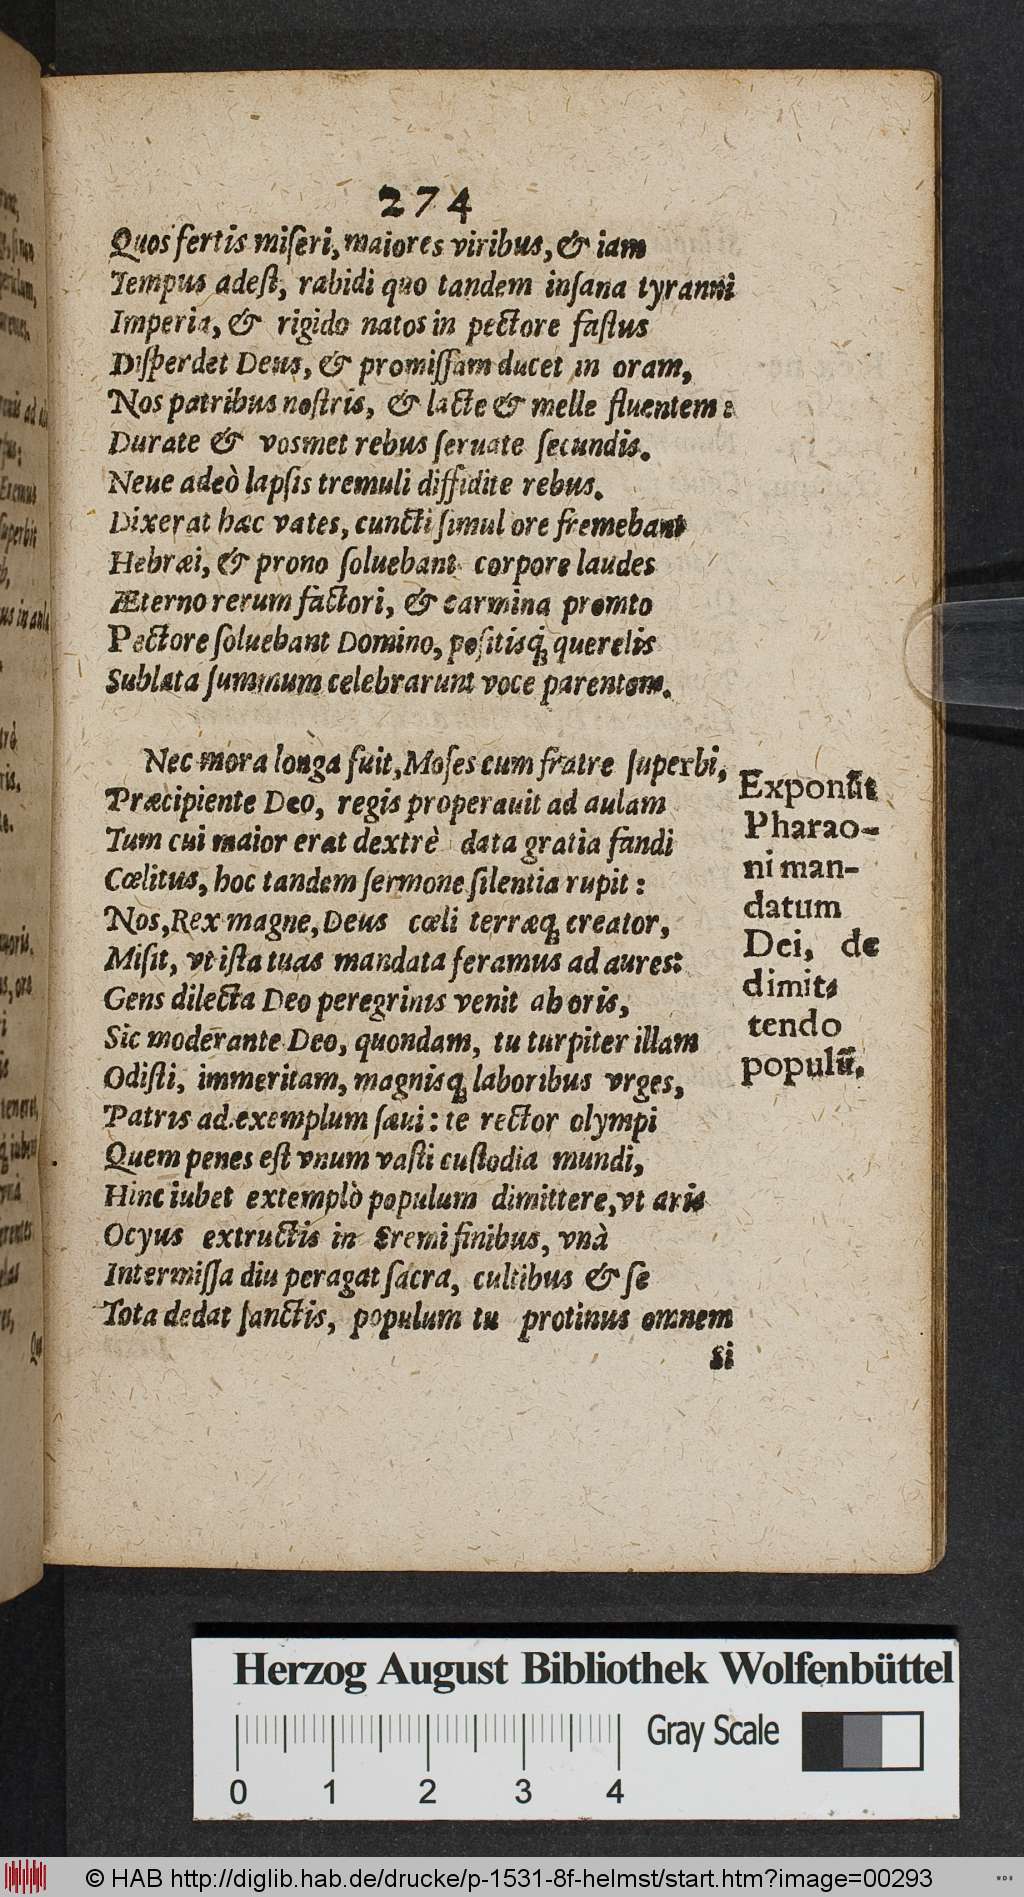 274
Quos fertis miſeri, maiores viribus, & iam
Tempus adeſt, rabidi quo tandem inſana tyranni
Imperia, & rigido natos in pectore faſtus
Diſperdet Deus, & promiſſam ducet in oram,
Nos patribus noſtris, & lacte & melle fluentem:
Durate & vosmet rebus ſeruate ſecundis.
Neue adeò lapſis tremuli diffidite rebus.
Dixerat hæc vates, cuncti ſimul ore fremebant
Hebræi, & prono ſoluebant corpore laudes
Æterno rerum factori, & carmina promto
Pectore ſoluebant Domino, poſitisq́; querelis
Sublata ſummum celebrarunt voce parentem.
Nec mora longa fuit, Moſes cum fratre ſuperbi,
Præcipiente Deo, regis properauit ad aulam
Tum cui maior erat dextrè data gratia fandi
Cœlitus, hoc tandem ſermone ſilentia rupit:
Nos, Rex magne, Deus cœli terræq; creator,
Miſit, vt iſta tuas mandata feramus ad aures:
Gens dilecta Deo peregrinis venit ab oris,
Sic moderante Deo, quondam, tu turpiter illam
Odiſti, immeritam, magnisq; laboribus vrges,
Patris ad exemplum ſæui: te rector olympi
Quem penes eſt vnum vaſti cuſtodia mundi,
Hinc iubet extemplò populum dimittere, vt aris
Ocyus extructis in Eremi finibus, vnà
Intermiſſa diu peragat ſacra, cultibus & ſe
Tota dedat ſanctis, populum tu protinus omnem
Si
Exponūt
Pharao-
ni man-
datum
Dei, de
dimit-
tendo
populū.
Herzog August Bibliothek Wolfenbüttel
Gray Scale
0 1 2 3 4
© HAB http://diglib.hab.de/drucke/p-1531-8f-helmst/start.htm?image=00293